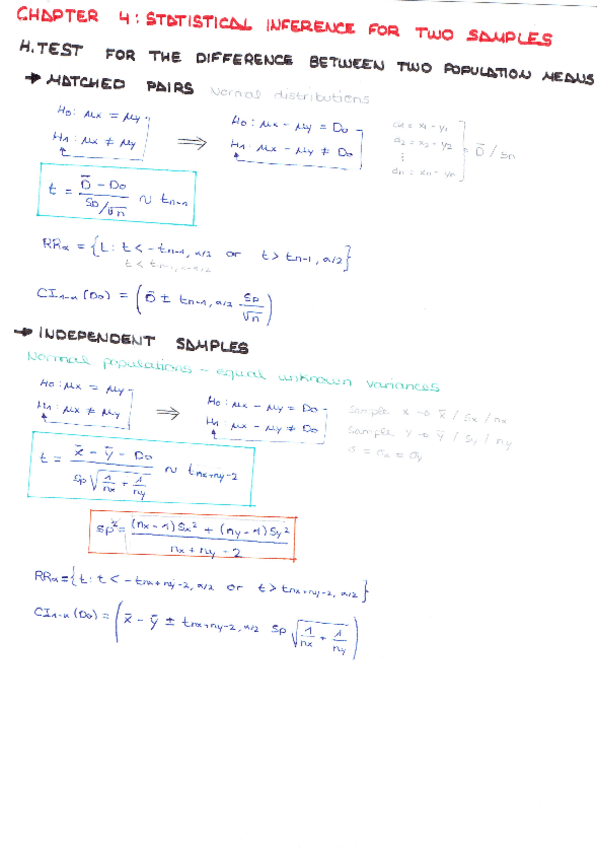 CHAPTER 4: STATISTICAL INFERENCE FOR TWO SAMPLES
H. TEST FOR THE DIFFERENCE BETWEEN TWO POPULATION MEANS
→ MATCHED PAIRS Normal distributions
H₀: μx = μy
H₁: μx ≠ μy
⇒
H₀: μx - μy = D₀
H₁: μx - μy ≠ D₀
d₁ = x₁ - y₁
d₂ = x₂ - y₂
⋮
dn = xn - yn
D̄ / sn
t = (D̄ - D₀) / (SD/√n) ~ tn-1
RRα = {t: t < -tn-1, α/2 or t > tn-1, α/2}
CI1-α (D₀) = (D̄ ± tn-1, α/2 SD/√n)
→ INDEPENDENT SAMPLES
Normal populations - equal unknown variances
H₀: μx = μy
H₁: μx ≠ μy
⇒
H₀: μx - μy = D₀
H₁: μx - μy ≠ D₀
Sample x → x̄ / sx / nx
Sample y → ȳ / sy / ny
σ = σx = σy
t = (x̄ - ȳ - D₀) / (sp √(1/nx + 1/ny)) ~ tnx+ny-2
sp² = ((nx - 1) Sx² + (ny - 1) Sy²) / (nx + ny - 2)
RRα = {t: t < -tnx+ny-2, α/2 or t > tnx+ny-2, α/2}
CI1-α (D₀) = (x̄ - ȳ ± tnx+ny-2, α/2 sp √(1/nx + 1/ny))